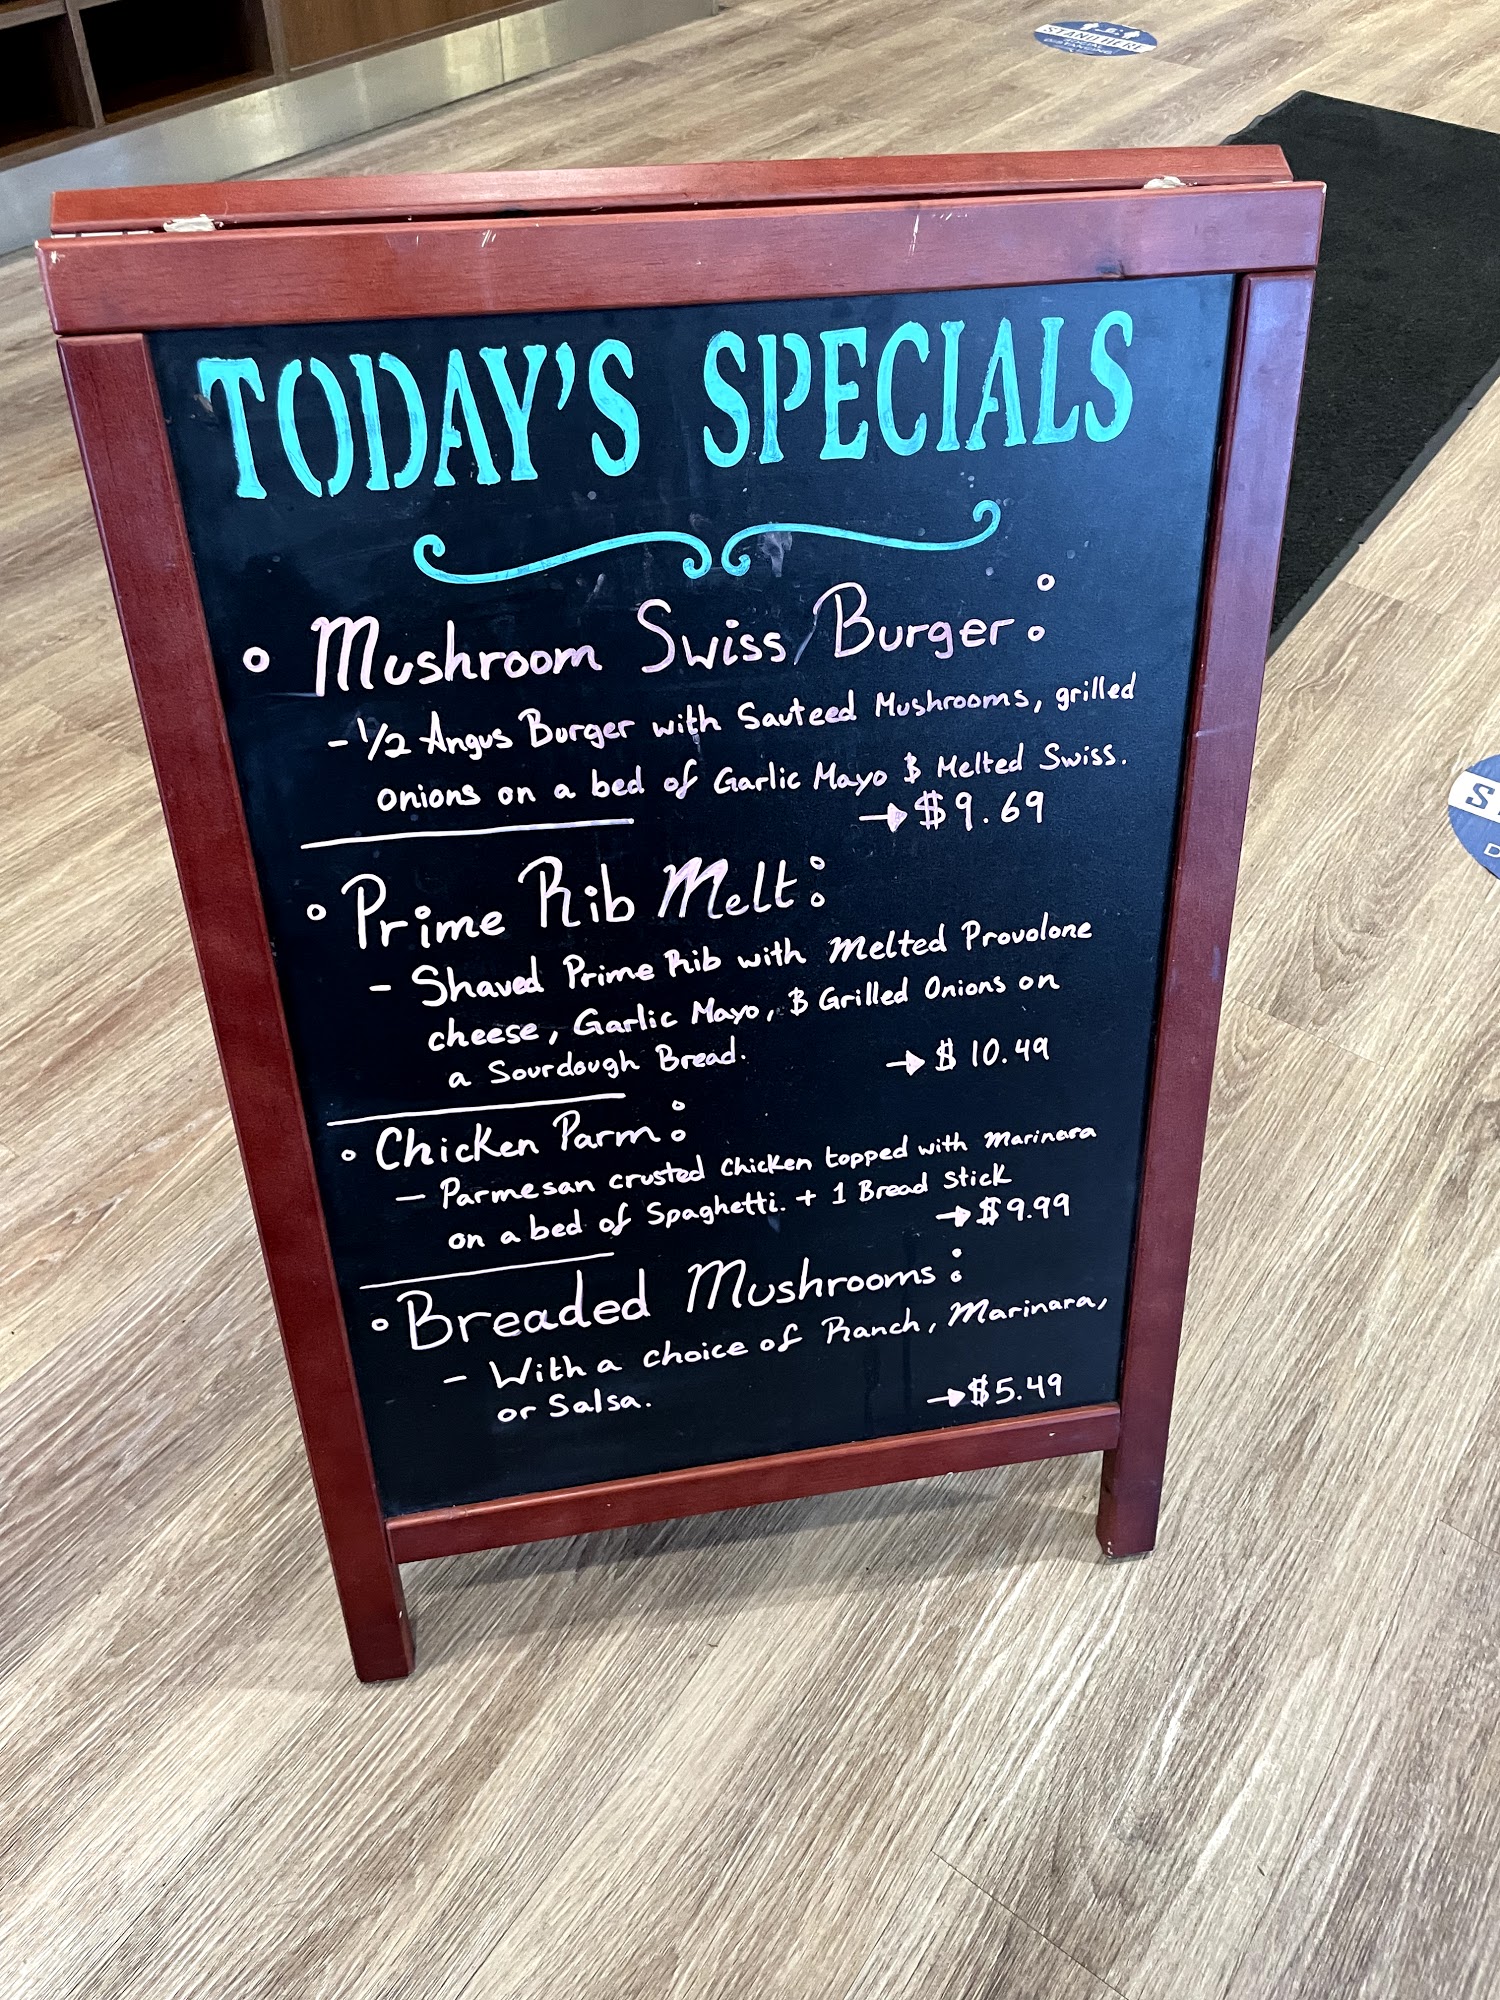 STAND HERE
SOCIAL
DISTANCING
TODAY'S SPECIALS
Mushroom Swiss Burger:
- 1/2 Angus Burger with Sauteed Mushrooms, grilled
onions on a bed of Garlic Mayo & Melted Swiss.
→ $9.69
Prime Rib Melt:
- Shaved Prime Rib with Melted Provolone
cheese, Garlic Mayo, & Grilled Onions on
a Sourdough Bread.
→ $10.49
Chicken Parm:
- Parmesan crusted Chicken topped with Marinara
on a bed of Spaghetti. + 1 Bread Stick
→ $9.99
Breaded Mushrooms:
- With a choice of Ranch, Marinara,
or Salsa.
→ $5.49